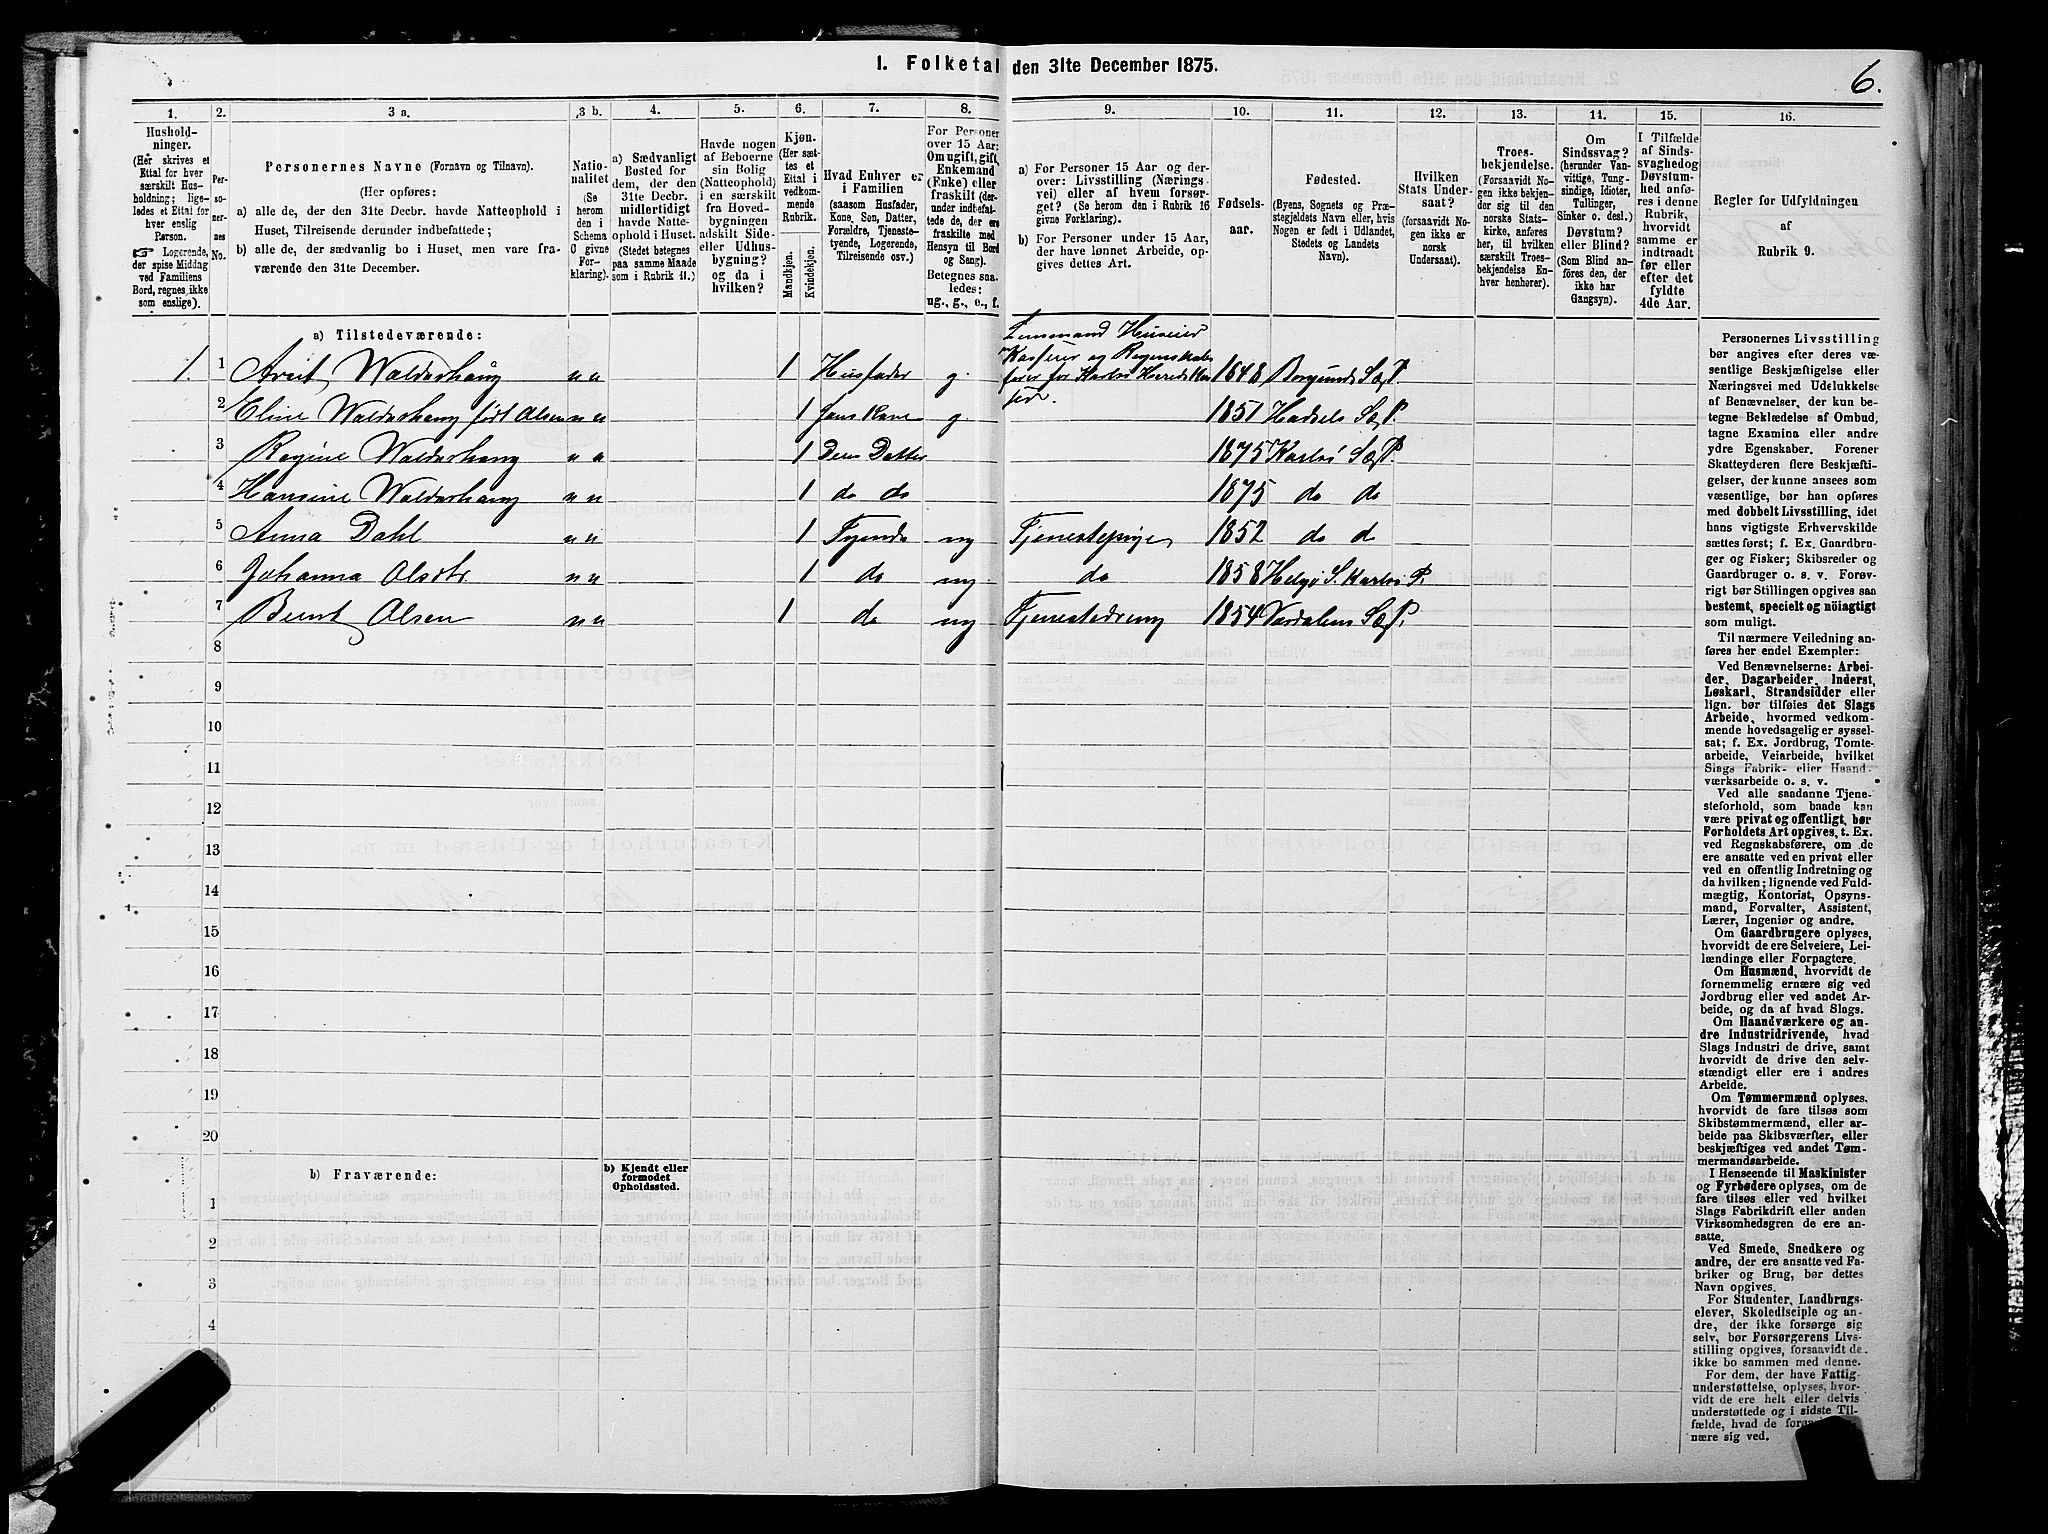 1. Folketal den 31te December 1875.
6.
1.
Hushold-
ninger.
(Her skrives et
Ettal for hver
særskilt Hus-
holdning; lige-
ledes et Ettal for
hver enslig
Person.
☞ Logerende,
der spise Middag
ved Familiens
Bord, regnes ikke
som enslige).
2.
Per-
so-
ner-
nes
No.
3 a.
Personernes Navne (Fornavn og Tilnavn).
(Her opføres:
a) alle de, der den 31te Decbr. havde Natteophold i
Huset, Tilreisende derunder indbefattede;
b) alle de, der sædvanlig bo i Huset, men vare fra-
værende den 31te December.
3 b.
Natio-
nalitet
(Se
herom
den i
Schema
C givne
For-
klaring).
4.
a) Sædvanligt
Bosted for
dem, der den
31te Decbr.
midlertidigt
havde Natte-
ophold i Huset.
(Stedet betegnes
paa samme Maade
som i Rubrik 11.)
5.
Havde nogen
af Beboerne
sin Bolig
(Natteophold)
i en særskilt
fra Hoved-
bygningen
adskilt Side-
eller Udhus-
bygning?
og da i
hvilken?
6.
Kjøn.
(Her sæt-
tes et
Ettal i
vedkom-
mende
Rubrik.
Mandkjøn.
Kvindekjøn.
7.
Hvad Enhver er
i Familien
(saasom Husfader,
Kone, Søn, Datter,
Forældre, Tjeneste-
tyende, Logerende,
Tilreisende osv.)
8.
For Personer
over 15 Aar:
Om ugift, gift,
Enkemand
(Enke) eller
fraskilt (der-
under indbefat-
tede de, der ere
fraskilte med
Hensyn til Bord
og Seng).
Betegnes saa-
ledes:
ug., g., e., f.
9.
a) For Personer 15 Aar og der-
over: Livsstilling (Nærings-
vei) eller af hvem forsør-
get? (Se herom den i Rubrik 16
givne Forklaring).
b) For Personer under 15 Aar,
der have lønnet Arbeide, op-
gives dettes Art.
10.
Fødsels-
aar.
11.
Fødested.
(Byens, Sognets og Præ-
stegjeldets Navn eller, hvis
Nogen er født i Udlandet,
Stedets og Landets
Navn).
12.
Hvilken
Stats Under-
saat?
(forsaavidt No-
gen ikke er
norsk
Undersaat).
13.
Troes-
bekjendelse.
(Forsaavidt No-
gen ikke bekjen-
der sig til den
norske Stats-
kirke, anføres
her, til hvilken
særskilt Troes-
bekjendelse En-
hver henhører).
14.
Om
Sindssvag?
(herunder Van-
vittige, Tung-
sindige, Idioter,
Tullinger,
Sinker o. desl.)
Døvstum?
eller Blind?
(Som Blind an-
føres den, der
ikke har
Gangsyn).
15.
I Tilfælde
af Sinds-
svaghedog
Døvstum-
hed anfø-
res i denne
Rubrik,
hvorvidt
samme er
indtraadt
før eller
efter det
fyldte
4de Aar.
16.
Regler for Udfyldningen
af
Rubrik 9.
a) Tilstedeværende:
Lensmand Huseier
Kasserer og Regnskabs
1. 1 Arnt Walderhaug n n 1 Husfader g. fører for Karlsø Hereds Kas 1848 Borgunds S &P.
2 Eline Walderhaug født Olsen n n 1 Hans Kone g. 1851 Hadsels S &P.
3 Regine Walderhaug n n 1 Deres Datter 1875 Karlsø S &P.
4 Hansine Walderhaug n n 1 do do 1875 do do
5 Anna Dahl n n 1 Tyende ug Tjenestepige 1852 do do
6 Johanna Olsdtr n n 1 do ug. do 1858 Helgø S. Karlsø P.
7 Bernt Olsen n n 1 do ug Tjenestedreng 1854 Værdalens S &P.
8
9
10
11
12
13
14
15
16
17
18
19
20
b) Fraværende:
b) Kjendt eller
formodet
Opholdssted.
1
2
3
4
5
6
Personernes Livsstilling
bør angives efter deres væ-
sentlige Beskjæftigelse eller
Næringsvei med Udelukkelse
af Benævnelser, der kun be-
tegne Beklædelse af Ombud,
tagne Examina eller andre
ydre Egenskaber. Forener
Skatteyderen flere Beskjæfti-
gelser, der kunne ansees som
væsentlige, bør han opføres
med dobbelt Livsstilling, idet
hans vigtigste Erhvervskilde
sættes først; f. Ex. Gaardbru-
ger og Fisker; Skibsreder og
Gaardbruger o. s. v. Forøv-
rigt bør Stillingen opgives saa
bestemt, specielt og nöiagtigt
som muligt.
Til nærmere Veiledning an-
føres her endel Exempler:
Ved Benævnelserne: Arbei-
der, Dagarbeider, Inderst,
Løskarl, Strandsidder eller
lign. bør tilføies det Slags
Arbeide, hvormed vedkom-
mende hovedsagelig er syssel-
sat; f. Ex. Jordbrug, Tomte-
arbeide, Veiarbeide, hvilket
Slags Fabrik- eller Haand-
værksarbeide o. s. v.
Ved alle saadanne Tjene-
steforhold, som baade kan
være privat og offentligt, bør
Forholdets Art opgives, t. Ex.
ved Regnskabsførere, om de
ere ansatte ved en privat eller
ved en offentlig Indretning og
da hvilken; lignende ved Fuld-
mægtig, Kontorist, Opsyns-
mand, Forvalter, Assistent,
Lærer, Ingeniør og andre.
Om Gaardbrugere oplyses,
hvorvidt de ere Selveiere, Lei-
lændinge eller Forpagtere.
Om Husmænd, hvorvidt de
fornemmelig ernære sig ved
Jordbrug eller ved andet Ar-
beide, og da af hvad Slags.
Om Haandværkere og an-
dre Industridrivende, hvad
Slags Industri de drive, samt
hvorvidt de drive den selv-
stændigt eller ere i andres
Arbeide.
Om Tømmermænd oplyses,
hvorvidt de fare tilsøs som
Skibstømmermænd, eller ar-
beide paa Skibsværfter, eller
beskjæftiges ved andet Tøm-
mermandsarbeide.
I Henseende til Maskinister
og Fyrbødere oplyses, om de
fare tilsøs eller ved hvilket
Slags Fabrikdrift eller anden
Virksomhedsgren de ere an-
satte.
Ved Smede, Snedkere og
andre, der ere ansatte ved Fa-
briker og Brug, bør dettes
Navn opgives.
For Studenter, Landbrugs-
elever, Skoledisciple og an-
dre, der ikke forsørge sig
selv, bør Forsørgerens Livs-
stilling opgives, forsaavidt de
ikke bo sammen med denne.
For dem, der have Fattig-
understøttelse, oplyses, hvor-
vidt de ere helt eller delvis
understøttede og i sidste Til-
fælde, hvad de
nære sig ved.